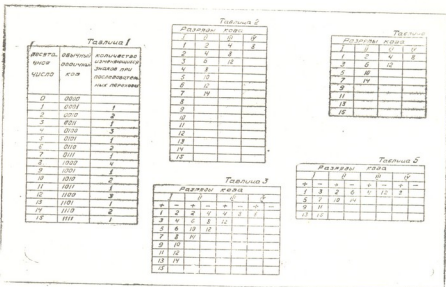 Таблица 1
десятичное число
обычный двоичный код
количество изменяющихся знаков при последовательных переходах
0 0000
1 0001 1
2 0010 2
3 0011 1
4 0100 3
5 0101 1
6 0110 2
7 0111 1
8 1000 4
9 1001 1
10 1010 2
11 1011 1
12 1100 3
13 1101 1
14 1110 2
15 1111 1
Таблица 2
Разряды кода
I II III IV
1 2 4 8
2 4 8
3 6 12
4 8
5 10
6 12
7 14
8
9
10
11
12
13
14
15
Разряды кода
1 2 4 8
3 6 12
5 10
7 14
9
11
13
15
Таблица 3
Разряды кода
+ - + - + - + -
1 2 2 4 4 8 8
3 4 6 8 12
5 6 10 12
7 8 14
9 10
11 12
13 14
15
Таблица 5
Разряды кода
+ - + - + - + -
1 3 2 6 4 12 8
5 7 10 14
9 11
13 15